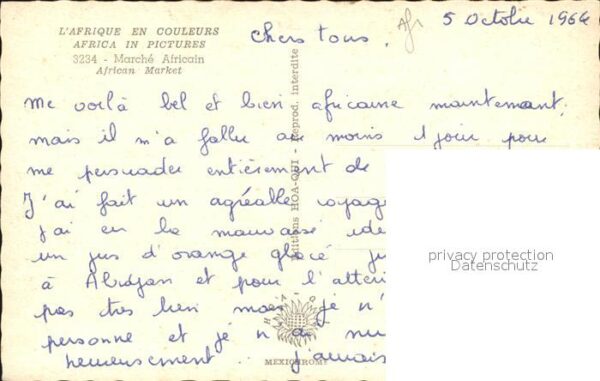 L'AFRIQUE EN COULEURS
AFRICA IN PICTURES
3234 - Marché Africain
African Market
Afr
5 Octobre 1964
Chers tous.
Me voilà bel et bien africaine maintenant,
mais il m'a fallu au moins 1 jour pour
me persuader entièrement de
J'ai fait un agréable voyage
j'ai eu la mauvaise idée
un jus d'orange glacé
à Abidjan et pour l'atterri
pas très bien mais je n'
personne et je n'ai
heureusement. jamais
Editions HOA-QUI - Reprod. interdite
MEXICHROME
privacy protection
Datenschutz